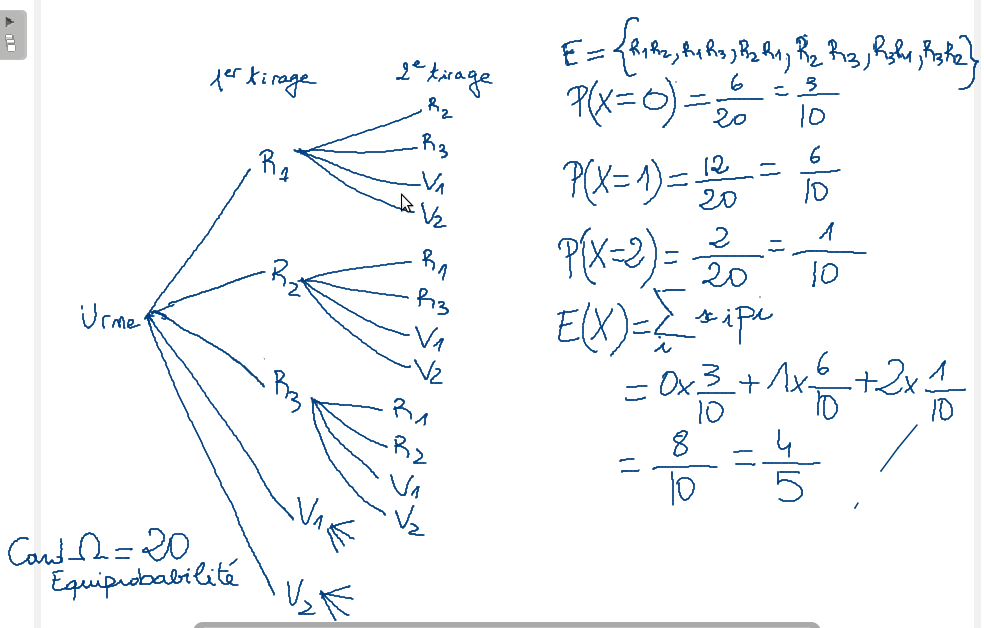 1er tirage 2e tirage
R1
R2
R3
V1
V2
R2
R1
R3
V1
V2
Urne
R3
R1
R2
V1
V2
V1
V2
Card Ω = 20
Equiprobabilité
E = {R1R2, R1R3, R2R1, R2R3, R3R1, R3R2}
P(X=0) = 6/20 = 3/10
P(X=1) = 12/20 = 6/10
P(X=2) = 2/20 = 1/10
E(X) = ∑i xipi
= 0x3/10 + 1x6/10 + 2x1/10
= 8/10 = 4/5